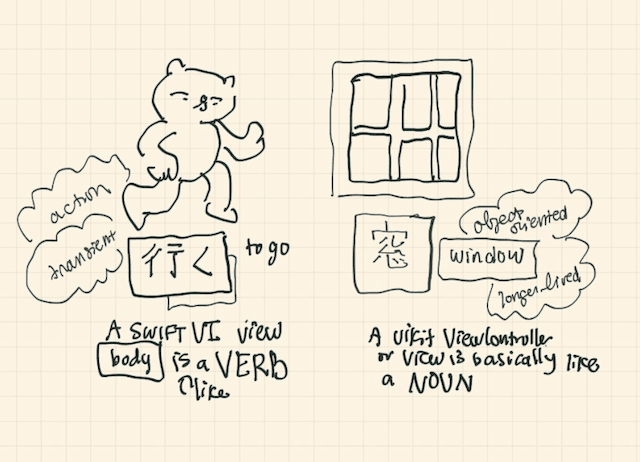 action
transient
行く
to go
A SWIFT UI view
body is a VERB
like
窓
object oriented
window
longer-lived
A UIKit ViewController
or View is basically like
a NOUN